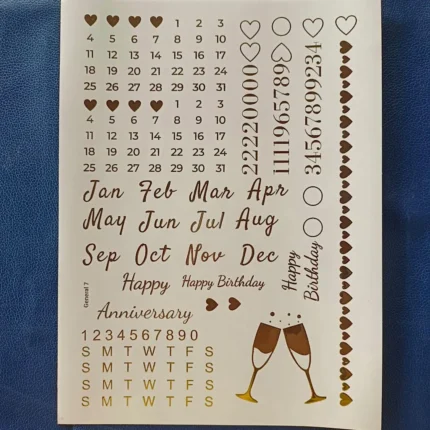 1 2 3
4 5 6 7 8 9 10
11 12 13 14 15 16 17
18 19 20 21 22 23 24
25 26 27 28 29 30 31
1 2 3
4 5 6 7 8 9 10
11 12 13 14 15 16 17
18 19 20 21 22 23 24
25 26 27 28 29 30 31
222200000
11119657899
345678999234
Jan Feb Mar Apr
May Jun Jul Aug
Sep Oct Nov Dec
Happy Happy Birthday
Happy
Birthday
General 7
Anniversary
1234567890
S M T W T F S
S M T W T F S
S M T W T F S
S M T W T F S